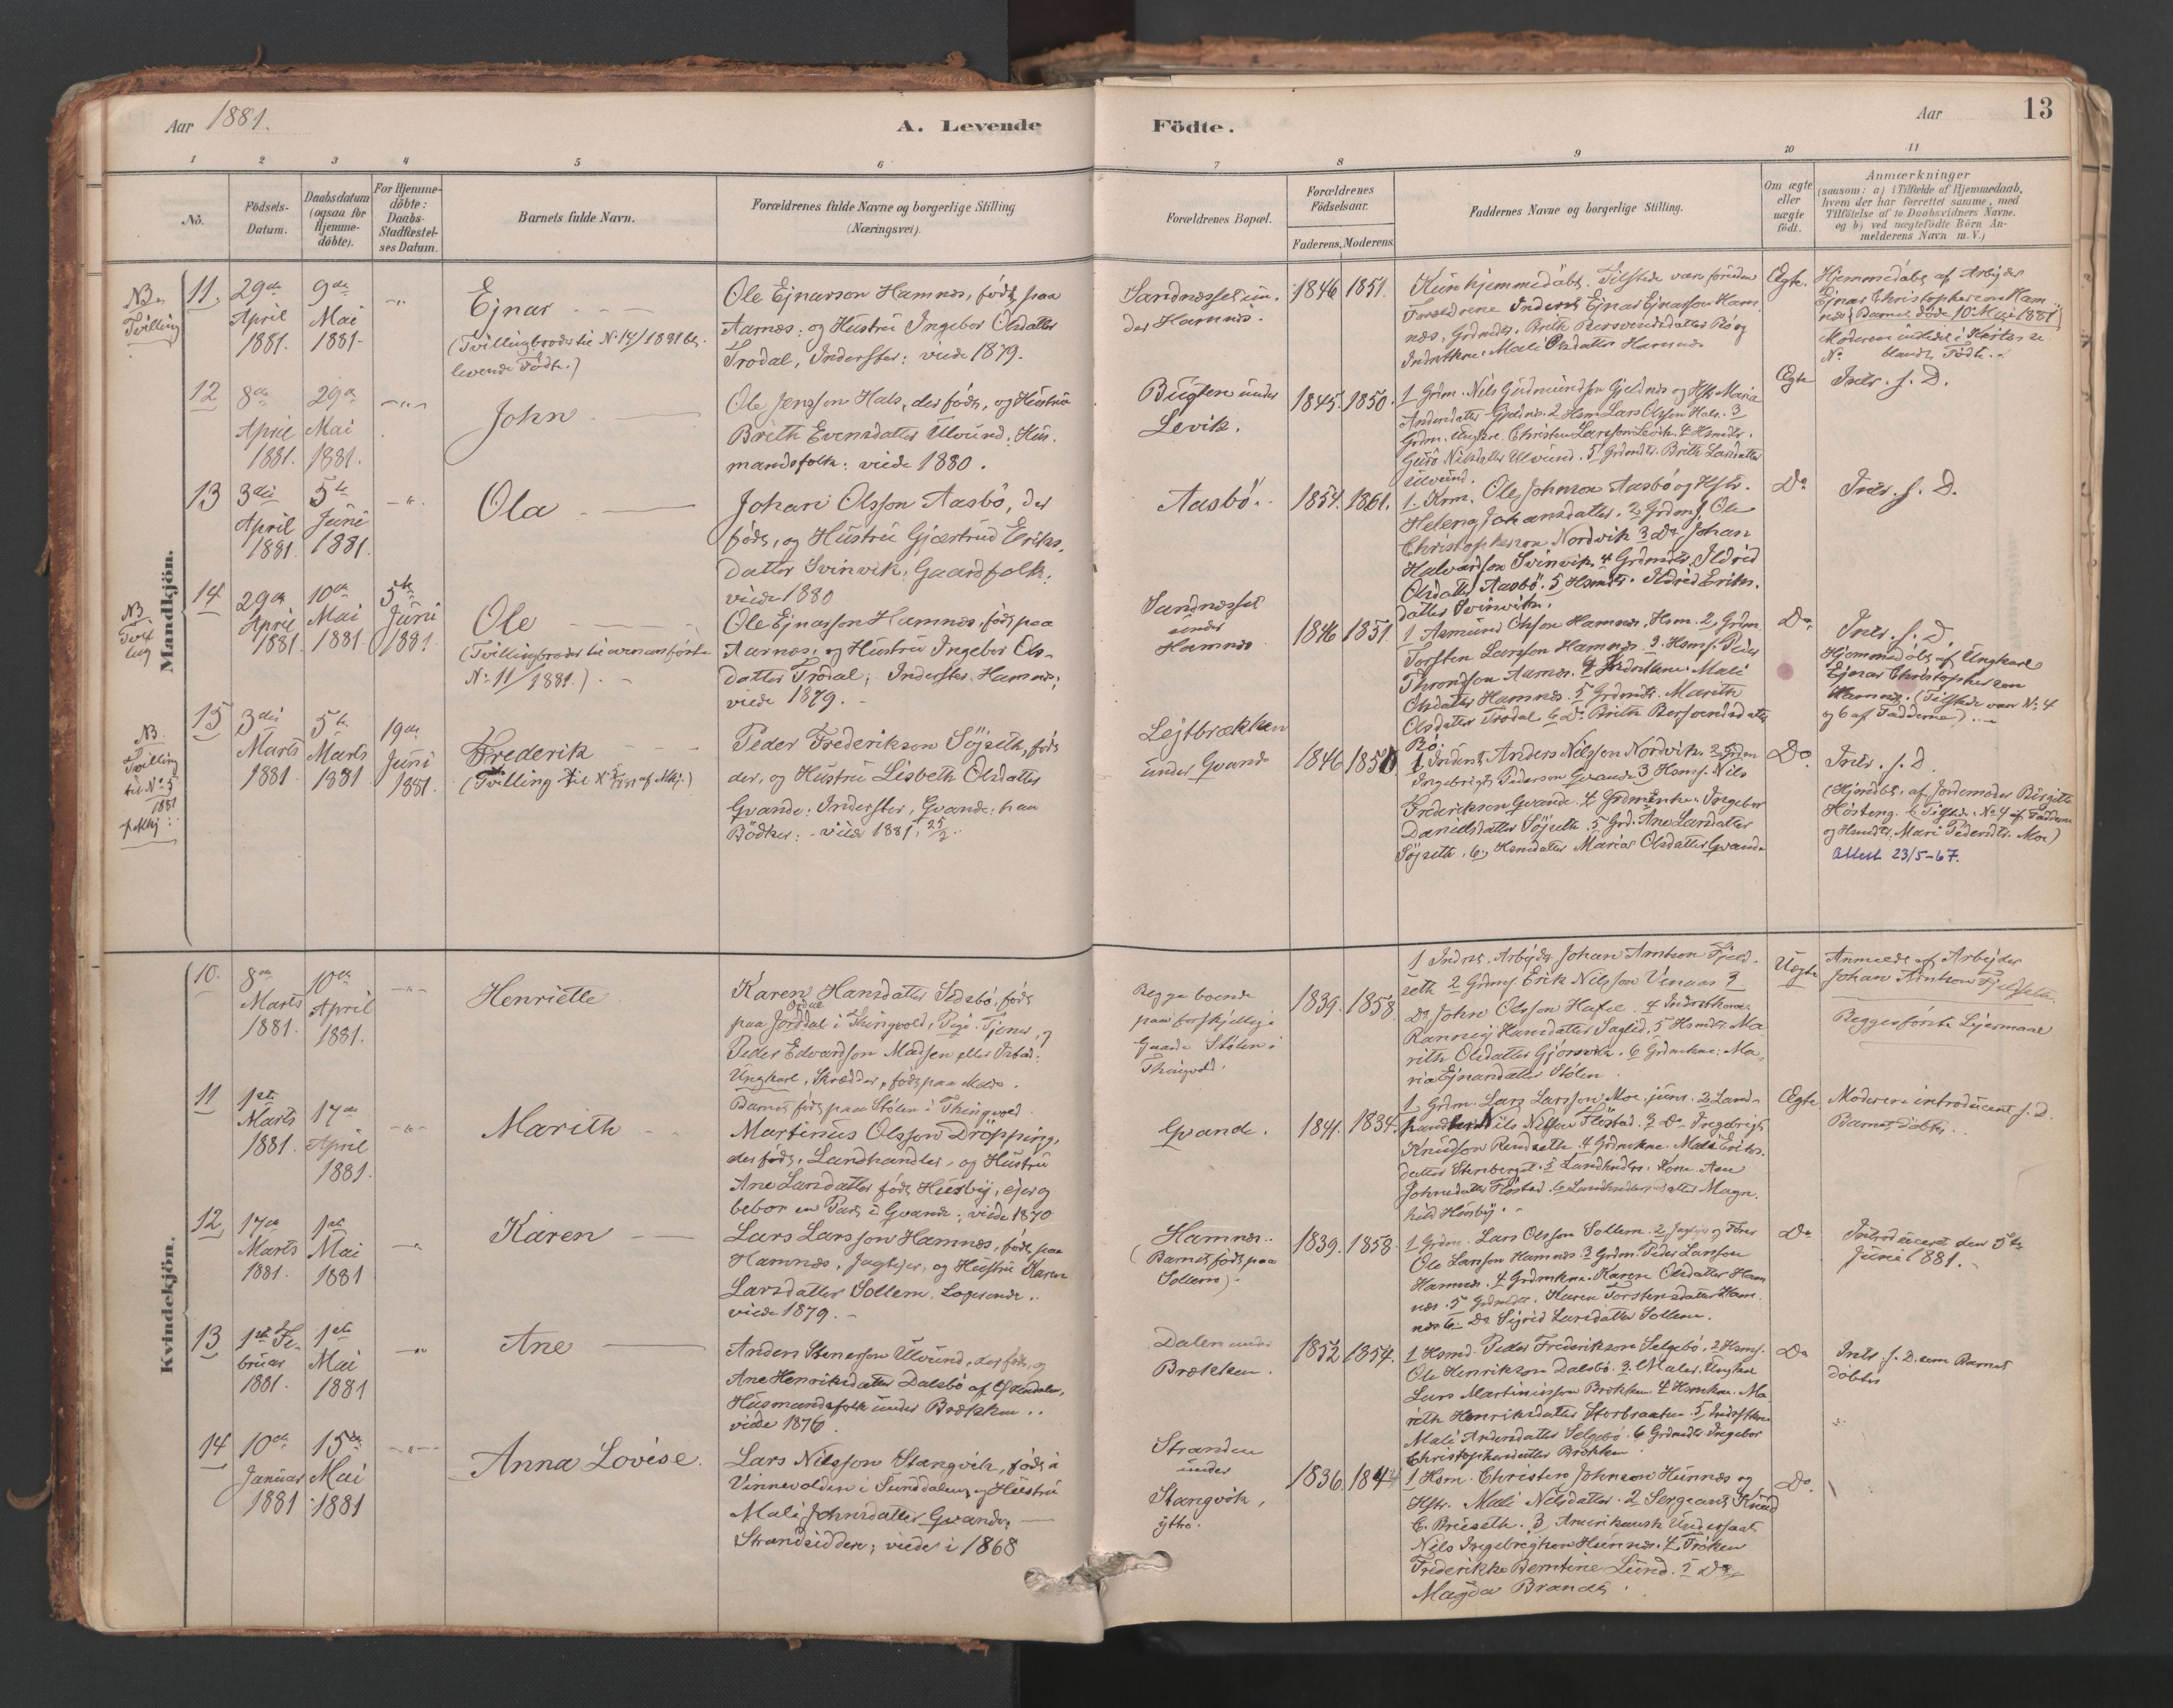 Aar 1881.
A. Levende
Födte.
Aar
13
1
2
3
4
5
6
7
8
9
10
11
No.
Födsels-
Datum.
Daabsdatum
(ogsaa for
Hjemme-
döbte).
For Hjemme-
döbte:
Daabs-
Stadfæstel-
ses Datum.
Barnets fulde Navn.
Forældrenes fulde Navne og borgerlige Stilling
(Næringsvei).
Forældrenes Bopæl.
Forældrenes
Födselsaar.
Faderens,
Moderens
Faddernes Navne og borgerlige Stilling.
Om ægte
eller
uægte
födt.
Anmærkninger
(saasom: a) i Tilfælde af Hjemmedaab,
hvem der har forrettet samme, med
Tilföielse af to Daabsvidners Navne.
og b) ved uægtefödte Börn An-
melderens Navn m. V.)
Mandkjön.
NB.
Tvilling
11.
29de
April
1881.
9de
Mai
1881.
Ejnar
(Tvillingbroder til No 14/1881 bl.
levende Födte.)
Ole Ejnarson Hamnes, födt paa
Aarnes; og Hustru Ingebor Olsdatter
Trodal, Inderster; viede 1879.
Sandnesset un-
der Hamnes.
1846
1851.
Kun hjemmedöbt. Tilstede vare foruden
Forældrene Inderst Ejnar Ejnarsson Ham
nes, Grdmdtr. Brith Bersvendsdatter Bö og
Inderstkone Mali Olsdatter Hamnes
Ægte.
Hjemmedöbt af Arbejder
Ejnar Christophersen Ham
nes (Barnet döde 10de Mai 1881)
Moderen
No blandt Födte.
12
8de
April
1881.
29de
Mai
1881.
John
Ole Jensson Hals, der födt, og Hustru
Brith Evensdatter Ulvund, Hus-
mandsfolk; viede 1880.
Bugten under
Levik.
1845.
1850.
1 Grdm. Nils Gudmundson Gjeldnes og Hstr Maria
Andersdatter Gjeldnes. 2 Hsm Lars Olsson Hals. 3
Grdm. Ungkrl. Christen Larsson Levik. 4 Hsmdtr.
Guro Nilsdatter Ulvund. 5 Grdmdtr. Brith Larsdatter
Ulvund.
Ægte
Intr. s. D.
13
3die
April
1881.
5te
Juni
1881.
Ola
Johan Olsson Aasbö, der
födt, og Hustru Gjærtrud Eriks-
datter Svinvik, Gaardfolk,
viede 1880
Aasbö.
1854.
1861.
1. Krm. Ole Johnson Aasbö og Hstr.
Helena Johansdatter. 2 Grdms. Ole
Christopherson Nordvik 3 Do Johan
Halvorsson Svinvik. 4 Grdmdtr. Ildrid
Olsdatter Aasbö. 5 Hsmdtr. Ildrid Eriks-
datter Svinvik.
Do
Intr. s. D.
NB
Tvil
ling
14
29de
April
1881
10de
Mai
1881
5te
Juni
1881
Ole
(Tvillingbroder til
No 11/1881.)
Ole Ejnarson Hamnes, födt paa
Aarnes, og Hustru Ingebor Ols-
datter Trodal; Inderster, Hamnes;
viede 1879.
Sandnesset
under
Hamnes
1846
1851.
1. Asmund Olsson Hamnes, Hsm. 2, Grdm.
Torsten Larsson Hamnes 3. Hsms. Peder
Throndson Aarnes. 4 Inderstkone Mali
Olsdatter Hamnes. 5 Grdmdtr. Marith
Olsdatter Trodal 6 Do Brith Bersvendsdatter
Bö.
Do
Intr. s. D.
Hjemmedöbt af Ungkarl
Ejnar Christophersen
Hamnes. (Tilstede var No 4
og 6 af Fadderne).
NB.
Tvilling
til No 5
1881
15
3die
Marts
1881
5te
Marts
1881
19de
Juni
1881.
Frederik
(Tvilling til No 5/1881 af Mkj.)
Peder Frederikson Söjseth, födt
der, og Hustru Lisbeth Olsdatter
Qvande, Inderster, Qvande, han
Bödker; viede 1881, 25/2.
Lejtbrækken
under Qvande
1846
1850
1 Inderst Anders Nilsson Nordvik. 2 Grdm
Ingebrigt Pederson Qvande 3 Hsms. Nils
Frederikson Qvande. 4 Grdmenke Ingebor
Danielsdatter Söjseth. 5 Grd. Ane Larsdatter
Söjseth. 6, Hsmdatter Marias Olsdatter Qvande
Do
Intr. s. D.
(Hjemdöbt af Jordemoder Birgitte
Hösteng. Tilstede No 4 af Fadderne
og Hsmdtr. Mari Pedersdtr. Moe)
Attest 23/5-67.
Kvindekjön.
10.
8de
Marts
1881.
10de
April
1881.
Henriette
Karen Hansdatter Sedsbö, födt
paa Jordal i Thingvold, Pige, Tjener,
Peder Edvardson Madsen
Ungkarl, Skrædder, födt paa Molde.
Barnet födt paa Stölen i Thingvold
Begge boende
paa forskjellige
Gaarde Stölen i
Thingvold.
1839.
1858.
1 Indrst. Arbejder Johan Arntson Fjeld-
seth 2 Grdms Erik Nilsson Vinaas 3
Do John Olsson 4 Inderstkone
Ranneij Hansdatter 5 Hsmdtr. Ma
rith Olsdatter 6 Grdmkone: Ma-
ria Ejnarsdatter Stölen
Uægte
Anmeldt af Arbejder
Johan Arntson Fjeldseth.
Begges förste Lejermaal
11
1ste
Marts
1881.
17de
April
1881.
Marith
Martinus Olsson Dröpping,
der födt, Landhandler, og Hustru
Ane Larsdatter födt Husby, ejer og
bebor en Part i Qvande; viede 1870
Qvande.
1841.
1834.
1, Grdm. Lars Larsson Moe junr. 2 Land-
handler Nils Nilsson Flöstad. 3 Do Ingebrigt
Knudson Rendseth 4 Grdmkone. Mali Eriks-
datter Stenberget. 5 Landhndlrs. Kone Ane
Johnsdatter Flöstad. 6 Landhndlersdatter Magn.
hild Husby.
Ægte
Moderen introduceret s. D.
Barnet döbtes.
12
17de
Marts
1881.
1ste
Mai
1881
Karen
Lars Larsson Hamnes, födt paa
Hamnes, Jagtejer, og Hustru Karen
Larsdatter Sollem, Logerende.
viede 1879.
Hamnes.
(Barnet födt paa
Sollem).
1839.
1858.
1 Grdm. Lars Olsson Sollem. 2 Jagtejer og Forer
Ole Larsson Hamnes. 3 Grdm. Peder Larsson
Hamnes. 4 Grdmkone. Karen Olsdatter Ham
nes. 5 Grdmdtr. Karen Torstensdatter Ham
nes 6. Do Sigrid Larsdatter Sollem.
Do
Introduceret den 5te
Juni 1881.
13
1ste Fe-
bruar
1881.
1ste
Mai
1881
Ane
Anders Stenerson Ulvund, der födt, og
Ane Henriksdatter Dalsbö
Husmandsfolk under Brækken..
viede 1876
Dalen under
Brækken.
1852
1854.
1 Hsmd. Peder Frederikson Selgebö, 2 Hsms.
Ole Henrikson Dalsbö. 3. Maler, Ungkar
Lars Martinusson Brækken. 4 Hsmkone. Ma
rith Henriksdatter Storbraaten. 5 Indrstkone
Mali Andersdatter Selgebö. 6 Grdmdtr Ingebor
Christophersdatter Brækken.
Do
Intr. s. D. som Barnet
döbtes
14
10de
Januar
1881
15de
Mai
1881
Anna Lovise.
Lars Nilsson Stangvik, födt i
Vinnevolden i Sunddalen, og Hustru
Mali Johnsdatter Qvande,
Strandsiddere; viede i 1868
Stranden
under
Stangvik,
ytre.
1836.
184
1 Hsm. Christen Johnson Hunnes og
Hstr. Mali Nilsdatter. 2 Sergeant Knud
C. Brieseth. 3, Amerikansk Undersaat
Nils Ingebregtson Hunnes. 4 Fröken
Frederikke Berntine Lund. 5 Do
Magda Brandt.
Do.